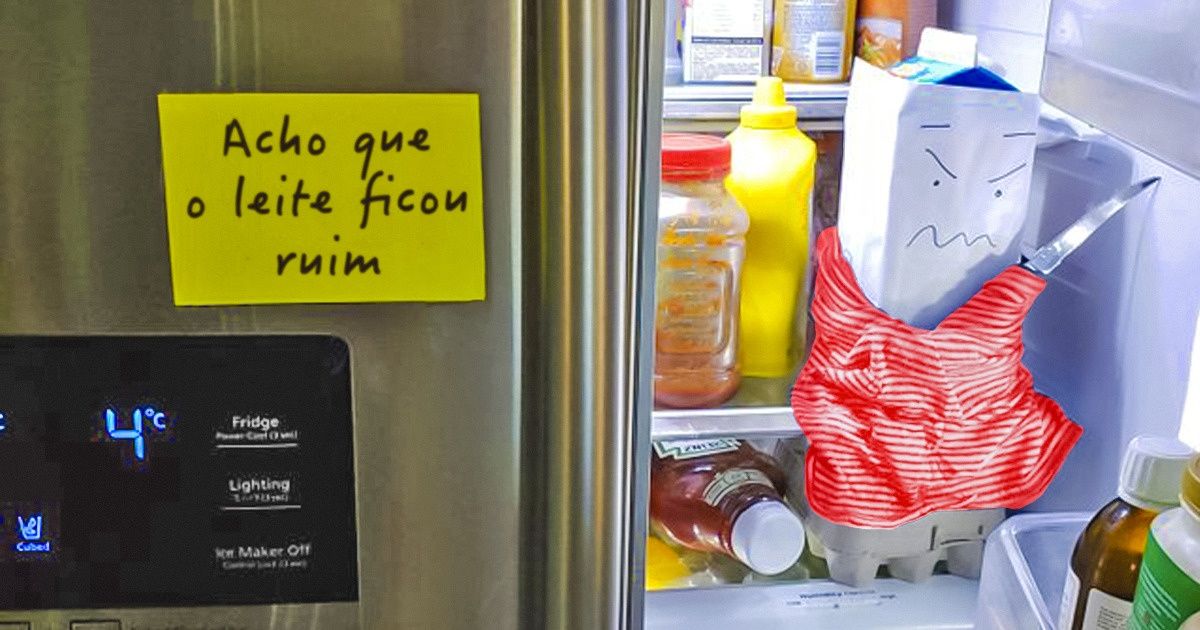 Acho que
o leite ficou
ruim
4°C
Fridge
Power Cool (3 sec)
Lighting
Ice Maker Off
Control Lock (3 sec)
Cubed
HEINZ